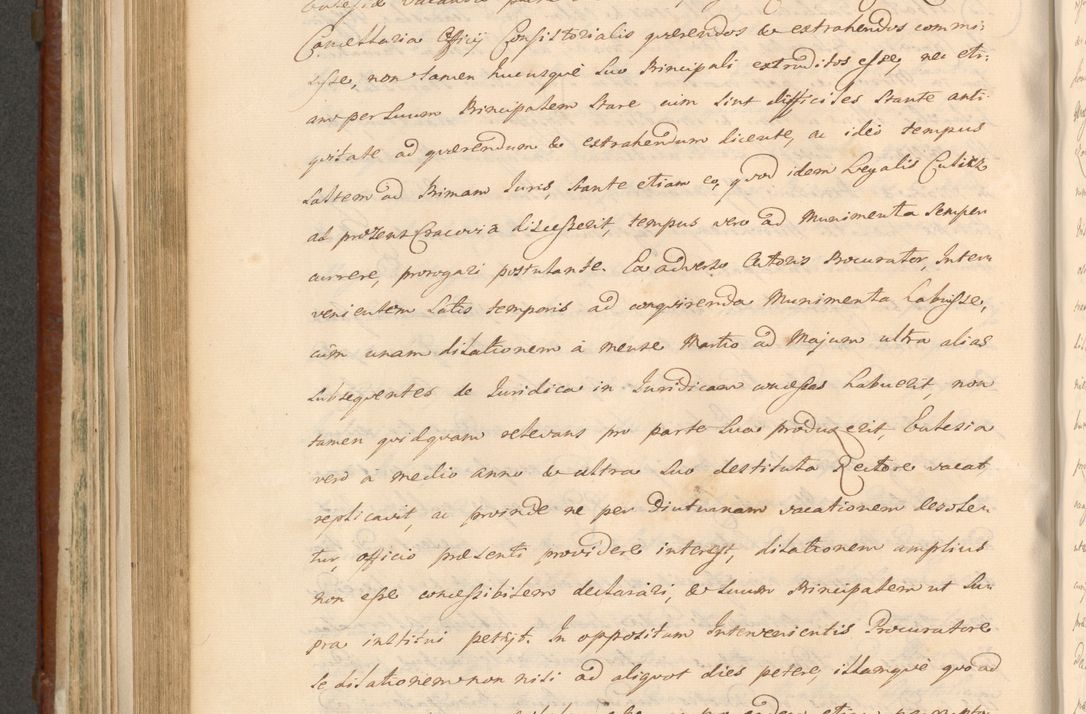 Cancellaria Officij Consistorialis quærendos & extrahendos commi-
sisse, non tamen hucusquè suo Principali extraditos esse, nec eti-
am per suum Principalem stare cum sint difficiles stante anti-
quitate ad quærendum & extrahendum dicente, ac ideo tempus
saltem ad Primam Juris, stante etiam eo, quod idem Legalis
ad præsens Cracovia discesserit, tempus vero ad Munimenta semper
currere, prorogari postulante. Ex adverso Actoris Procurator, Inter-
venientem satis temporis ad conquirenda Munimenta habuisse,
cùm unam dilationem à mense Martio ad Majum ultra alias
subsequentes de Juridica in Juridicam concessas habuerit, non
tamen quidquam relevans pro parte sua produxerit, Ecclesia
verò a medio anno & ultra suo destituta Rectore vacat,
replicavit, ac proinde ne per diuturnam vacationem
tur, officio præsenti providere interest, dilationem amplius
non esse concessibilem declarari, & suum Principalem ut su-
pra institui petijt. In oppositum Intervenientis Procuratore
se dilationem non nisi ad aliquot dies petere, illamquè quoad